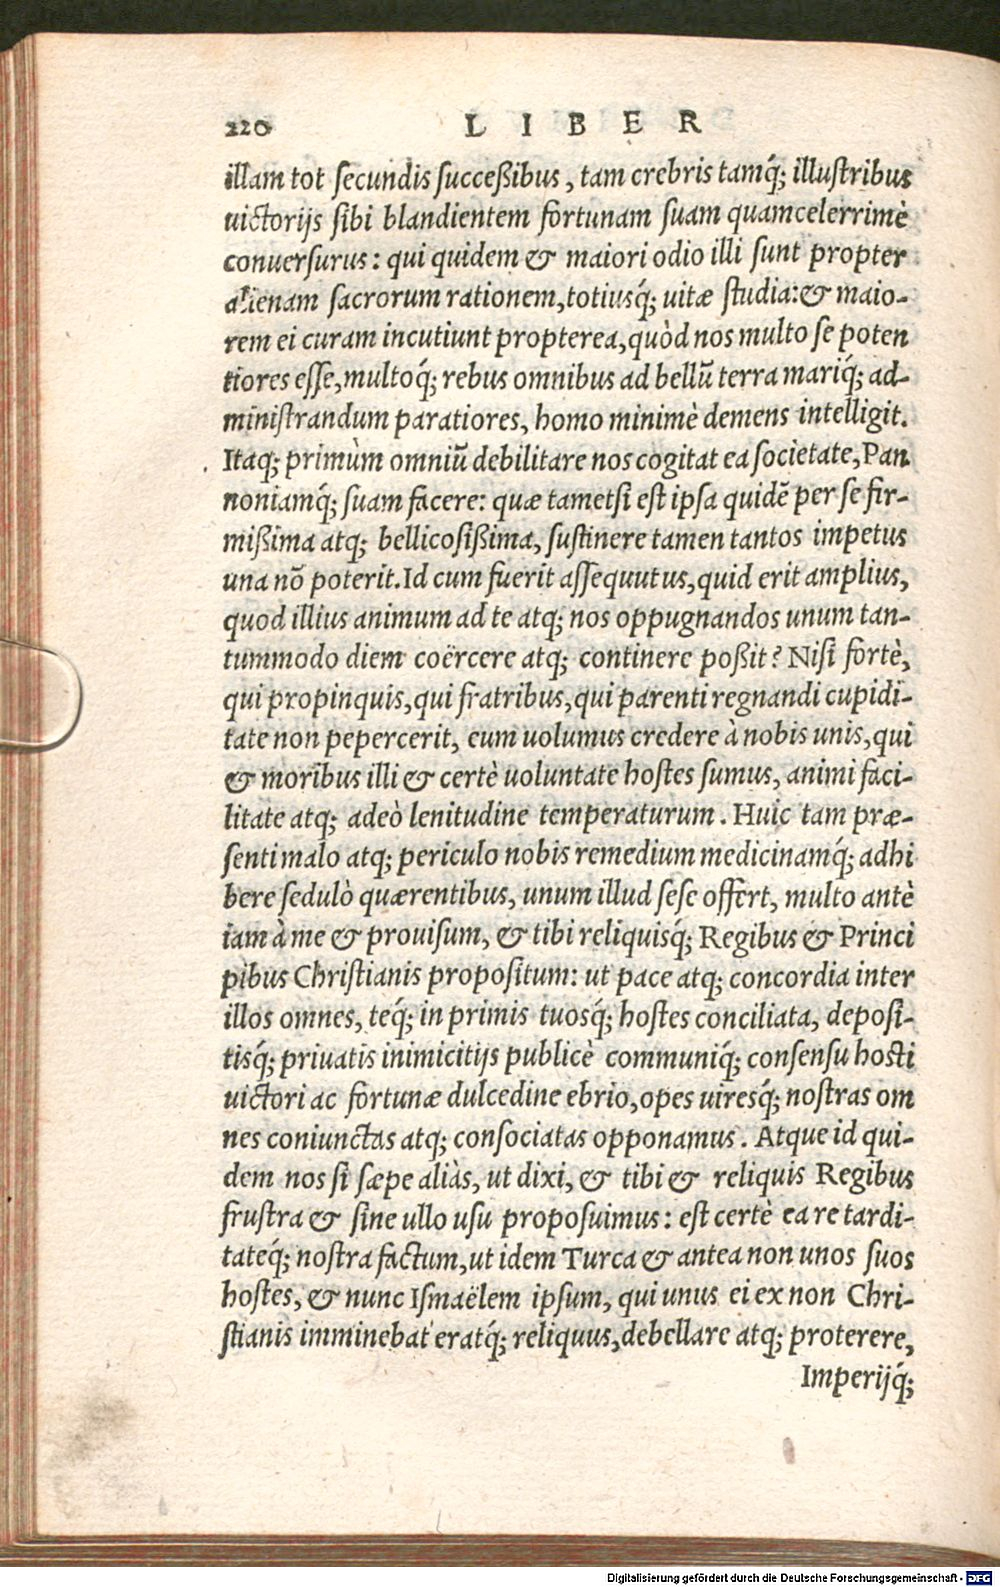 220 LIBER
illam tot secundis succeßibus, tam crebris tamq́; illustribus
uictorijs sibi blandientem fortunam suam quamcelerrimè
conuersurus: qui quidem & maiori odio illi sunt propter
alienam sacrorum rationem, totiusq́; uitæ studia: & maio-
rem ei curam incutiunt propterea, quòd nos multo se poten
tiores esse, multoq́; rebus omnibus ad bellū terra mariq́; ad-
ministrandum paratiores, homo minimè demens intelligit.
Itaq; primùm omniū debilitare nos cogitat ea societate, Pan
noniamq́; suam facere: quæ tametsi est ipsa quidē per se fir-
mißima atq; bellicosißima, sustinere tamen tantos impetus
una nō poterit. Id cum fuerit assequutus, quid erit amplius,
quod illius animum ad te atq; nos oppugnandos unum tan-
tummodo diem coërcere atq; continere poßit? Nisi fortè,
qui propinquis, qui fratribus, qui parenti regnandi cupidi-
tate non pepercerit, eum uolumus credere à nobis unis, qui
& moribus illi & certè uoluntate hostes sumus, animi faci-
litate atq; adeò lenitudine temperaturum. Huic tam præ-
senti malo atq; periculo nobis remedium medicinamq́; adhi
bere sedulò quærentibus, unum illud sese offert, multo antè
iam à me & prouisum, & tibi reliquisq́; Regibus & Princi
pibus Christianis propositum: ut pace atq; concordia inter
illos omnes, teq́; in primis tuosq́; hostes conciliata, deposi-
tisq́; priuatis inimicitijs publicè communiq́; consensu hosti
uictori ac fortunæ dulcedine ebrio, opes uiresq́; nostras om
nes coniunctas atq; consociatas opponamus. Atque id qui-
dem nos si sæpe aliàs, ut dixi, & tibi & reliquis Regibus
frustra & sine ullo usu proposuimus: est certè ea re tardi-
tateq́; nostra factum, ut idem Turca & antea non unos suos
hostes, & nunc Ismaëlem ipsum, qui unus ei ex non Chri-
stianis imminebat eratq́; reliquus, debellare atq; proterere,
Imperijq́;
Digitalisierung gefördert durch die Deutsche Forschungsgemeinschaft - DFG